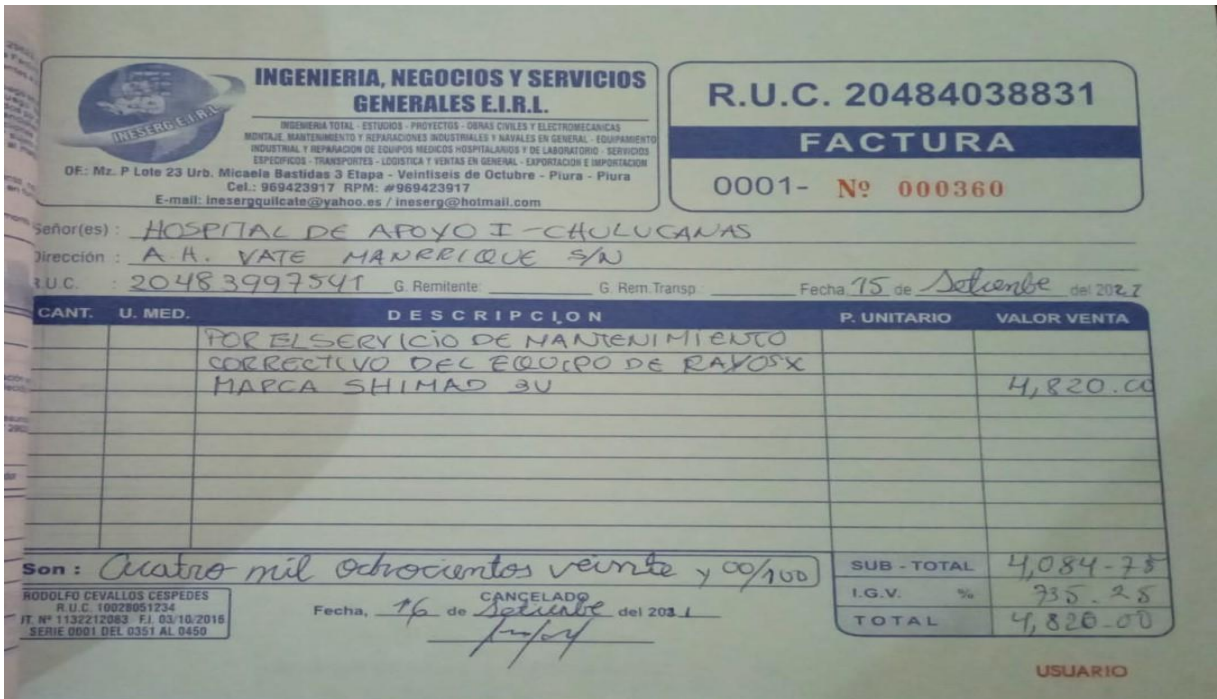 INESERG E.I.R.L
INGENIERIA, NEGOCIOS Y SERVICIOS
GENERALES E.I.R.L.
INGENIERIA TOTAL - ESTUDIOS - PROYECTOS - OBRAS CIVILES Y ELECTROMECANICAS
MONTAJE, MANTENIMIENTO Y REPARACIONES INDUSTRIALES Y NAVALES EN GENERAL - EQUIPAMIENTO
INDUSTRIAL Y REPARACION DE EQUIPOS MEDICOS HOSPITALARIOS Y DE LABORATORIO - SERVICIOS
ESPECIFICOS - TRANSPORTES - LOGISTICA Y VENTAS EN GENERAL - EXPORTACION E IMPORTACION
OF.: Mz. P Lote 23 Urb. Micaela Bastidas 3 Etapa - Veintiseis de Octubre - Piura - Piura
Cel.: 969423917 RPM: #969423917
E-mail: inesergquilcate@yahoo.es / ineserg@hotmail.com
R.U.C. 20484038831
FACTURA
0001- Nº 000360
Señor(es) : HOSPITAL DE APOYO I - CHULUCANAS
Dirección : A.H. VATE MANRRIQUE S/N
R.U.C. : 20483997541 G. Remitente: G. Rem.Transp.: Fecha 15 de Setienbe del 2021
CANT. U. MED. DESCRIPCION P. UNITARIO VALOR VENTA
POR EL SERVICIO DE MANTENIMIENTO
CORRECTIVO DEL EQUIPO DE RAYOS X
MARCA SHIMAD 3U 4,820.00
Son : Cuatro mil ochocientos veinte y 00/100
SUB - TOTAL 4,084-75
I.G.V. % 735.25
TOTAL 4,820-00
RODOLFO CEVALLOS CESPEDES
R.U.C. 10028051234
UT. Nº 1132212083 F.I. 03/10/2016
SERIE 0001 DEL 0351 AL 0450
CANCELADO
Fecha, 16 de Setienbe del 2021
USUARIO